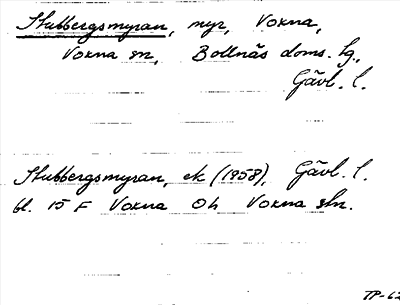 Stubbergsmyran, myr, Voxna,
Voxna sn, Bollnäs doms. hg.,
Gävl. l.
Stubbergsmyran, ek (1958), Gävl. l.
bl. 15 F Voxna Oh Voxna skn.
TP-62